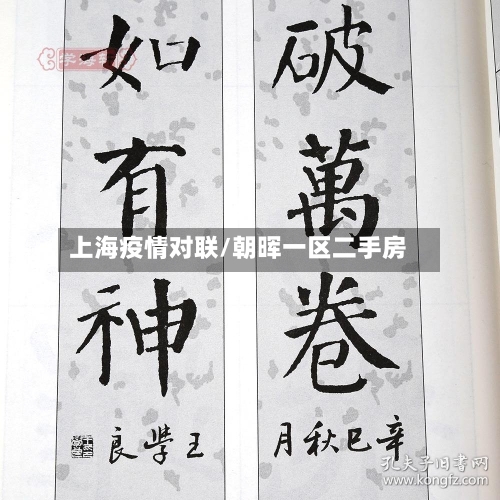 破萬卷
辛巳秋月
如有神
王學良
上海疫情对联/朝晖一区二手房
孔夫子旧书网
kongfz.com